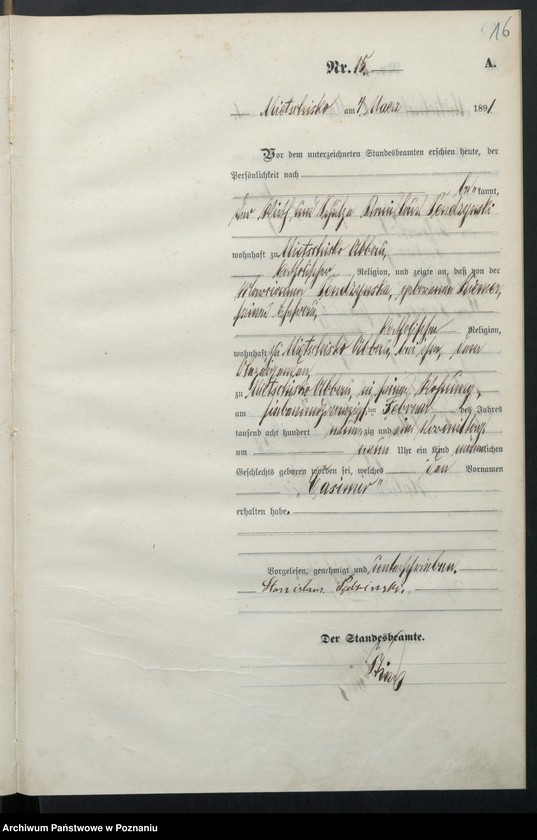 16
Nr. 15. A.
Mietschisko am 4 Maerz 1891
Vor dem unterzeichneten Standesbeamten erschien heute, der
Persönlichkeit nach
bekannt,
der Wirth und
wohnhaft zu Mietschisko Abbau,
katholischer Religion, und zeigte an, daß von der
geborenen
seiner Ehefrau,
katholischer Religion,
wohnhaft zu Mietschisko Abbau, bei ihm, dem
Anzeigenden,
zu Mietschisko Abbau, in seiner Wohnung,
am siebenundzwanzigsten Februar des Jahres
tausend acht hundert neunzig und ein Vormittags
um neun Uhr ein Kind männlichen
Geschlechts geboren worden sei, welches den Vornamen
„Casimir"
erhalten habe.
Vorgelesen, genehmigt und unterschrieben.
Der Standesbeamte.
Archiwum Państwowe w Poznaniu